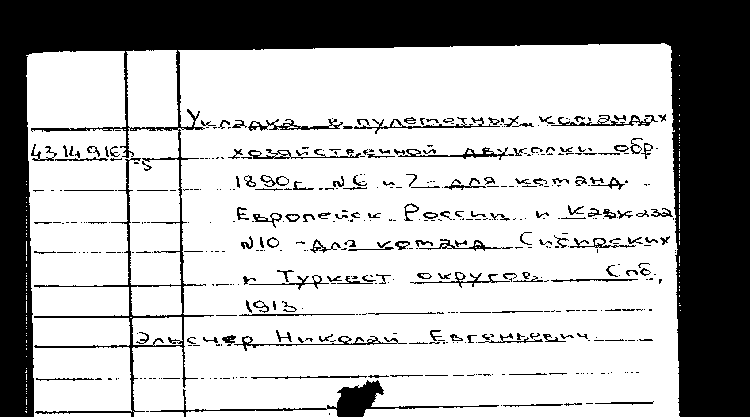 Укладка в пулеметных командах
43149163-5 хозяйственной двуколки обр.
1890г. №6 и 7 - для команд.
Европейск России и Кавказа
№10 - для команд Сибирских
и Туркест округов. Спб.,
1913.
Эльснер Николай Евгеньевич